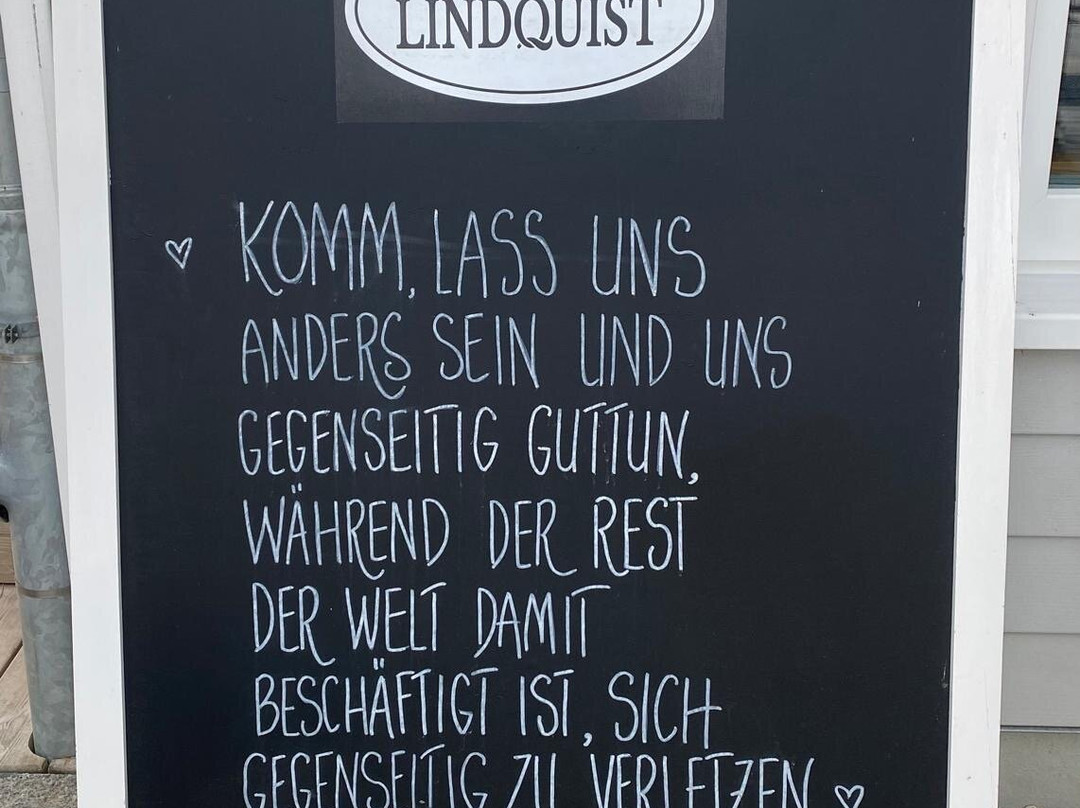 LINDQUIST
KOMM, LASS UNS
ANDERS SEIN UND UNS
GEGENSEITIG GUTTUN,
WÄHREND DER REST
DER WELT DAMIT
BESCHÄFTIGT IST, SICH
GEGENSEITIG ZU VERLETZEN